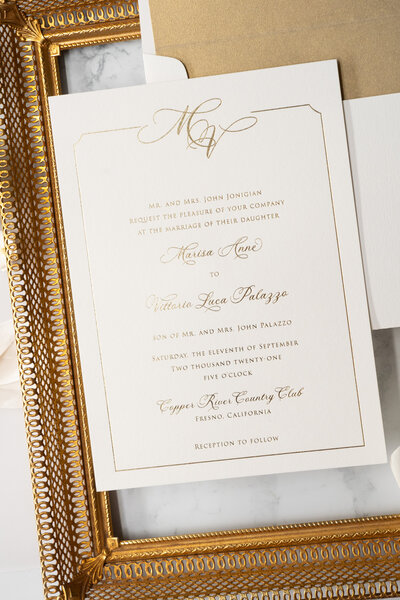 MV
Mr. and Mrs. John Jonigian
request the pleasure of your company
at the marriage of their daughter
Marisa Anne
to
Vittorio Luca Palazzo
son of Mr. and Mrs. John Palazzo
Saturday, the eleventh of September
two thousand twenty-one
five o'clock
Copper River Country Club
Fresno, California
Reception to follow